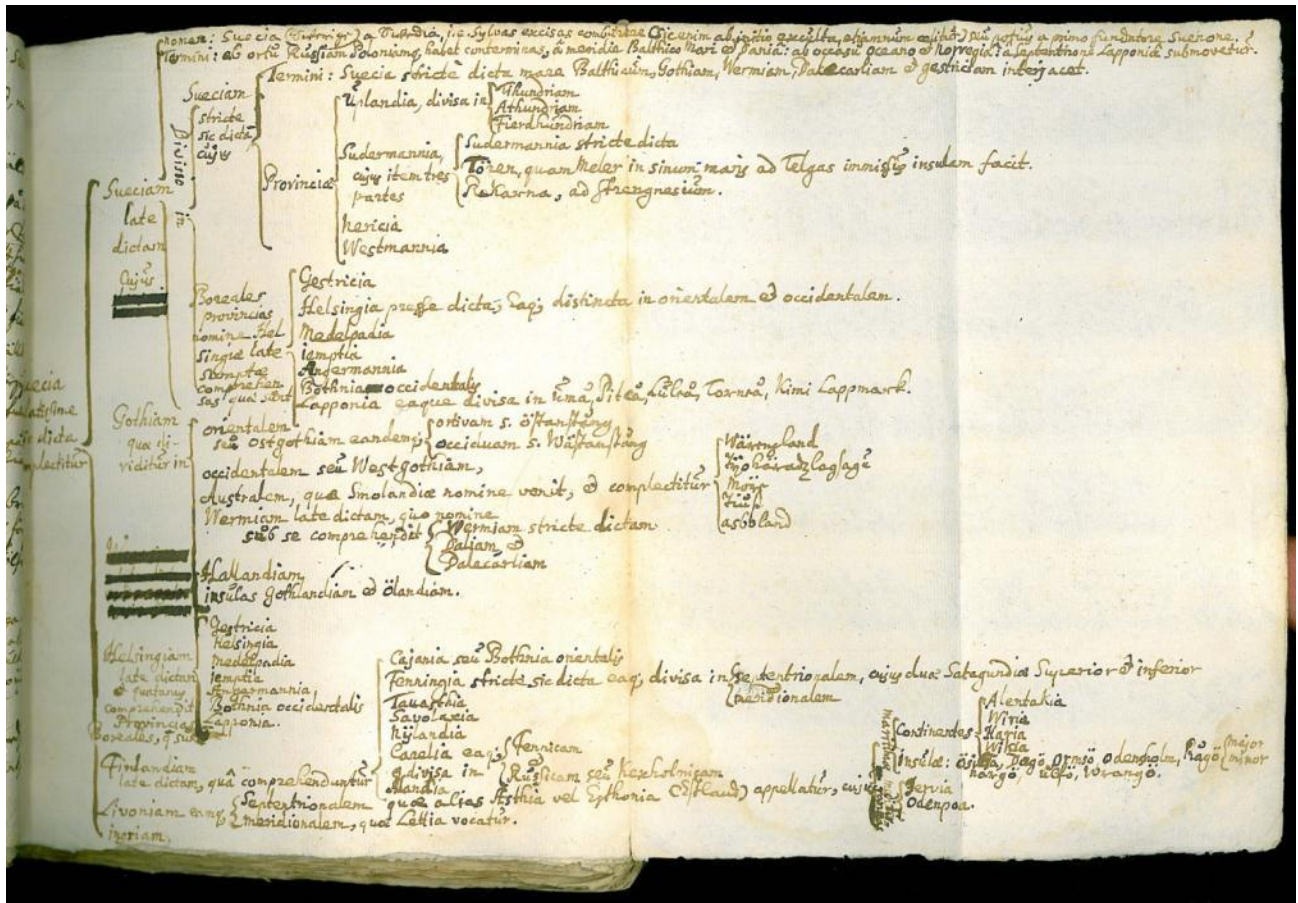 nomen: Suecia a i.e. Sylvas excisas ab initio exculta, etiamnum seu potius a primo fundatore Suenone.
Termini: ab ortu Russiam Poloniamq; habet conterminas, a meridie Balthico Mari et Dania: ab occasu Oceano et Norvegia: a Septentrione Lapponia submovetur.
Termini: Suecia stricte dicta mare Balthicum, Gothiam, Wermiam, Dalecarliam & Gestriciam interjacet.
Sueciam
stricte
sic dictā
cujus
Divisio in
Provinciæ
Uplandia, divisa in
Thundriam
Athundriam
Fierdhundriam
Sudermannia,
cujus item tres
partes
Sudermannia stricte dicta
Tören, quam Meler in sinum maris ad Telgas immissus insulam facit.
Rekarna, ad Strengnesium.
Nericia
Westmannia
Sueciam
late
dictam
Cujus
Boreales
provincias
nomine Hel
singiæ late
sumptæ
comprehen
sas quæ sunt
Gestricia
Helsingia presse dicta, Eaq; distincta in orientalem & occidentalem.
Medelpadia
iemptia
Angermannia
Bothnia occidentalis
Lapponia eaque divisa in Uma, Piteå, Lulea, Tornea, Kimi Lappmark.
uecia
latissime
dicta
plectitur
Gothiam
quæ di-
viditur in
orientalem
seu Ostgothiam eandemq;
ortivam s. östanstång
occiduam s. Wästanstång
occidentalem seu Westgothiam,
Australem, quæ Smolandiæ nomine venit, & complectitur
Wärengland
Möre
Tiust
asboland
Wermiam late dictam, quo nomine
sub se comprehendit
Wermiam stricte dictam
Daliam, &
Dalecarliam
Hallandiam,
insulas Gothlandiam & Ölandiam.
Helsingiam
late dictam
comprehendit
Provincias
Boreales, q; sunt
Gestricia
Helsingia
Medelpadia
jemptia
Angermannia,
Bothnia occidentalis
Lapponia.
Finlandiam
late dictam, quâ comprehenduntur
Cajania seu Bothnia orientalis
Fenningia stricte sic dicta eaq; divisa in
Septentrionalem, cujus duæ Satagundiæ Superior & inferior
meridionalem
Tavasthia
Savolaxia
Nylandia
Carelia eaq;
divisa in
Fennicam
Russicam seu Kexholmisam
Alandia
Livoniam eamq;
Septentrionalem quæ alias Æsthia vel Esthonia (Estland) appellatur, cujus
meridionalem, quæ Lettia vocatur.
Continentes
Alentakia
Wiria
Haria
Wikia
Insulæ: ösilia, Dagö, Ormsö, Odensholm, Rågö
major
minor
nargö, ulfö, Wrangö.
Jervia
Odenpoa.
ingriam.